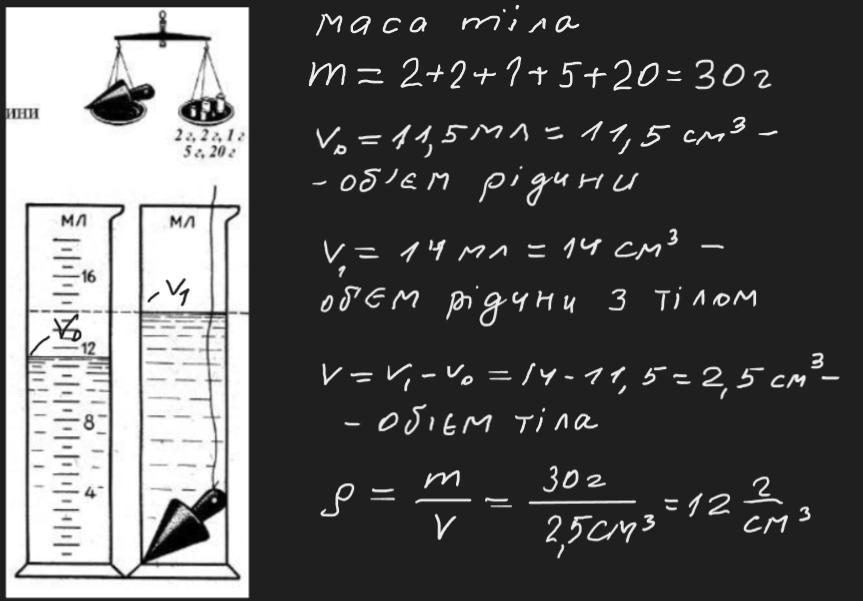 ини
2 г, 2 г, 1 г
5 г, 20 г
мл
16
12
8
4
V₀
мл
V₁
маса тіла
m = 2+2+1+5+20 = 30 г
V₀ = 11,5 мл = 11,5 см³ –
– об'єм рідини
V₁ = 14 мл = 14 см³ –
обєм рідини з тілом
V = V₁ – V₀ = 14 – 11,5 = 2,5 см³ –
– об'єм тіла
ρ = m/V = 30г/2,5см³ = 12 г/см³